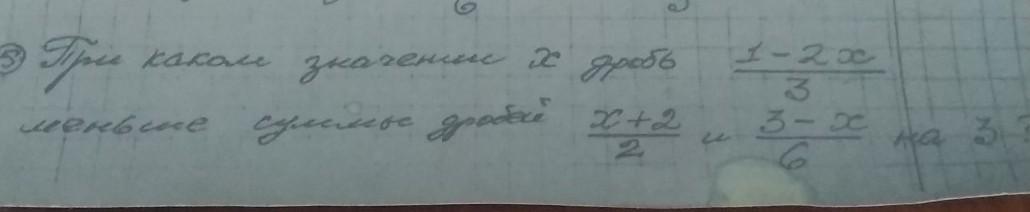 5) При каком значении x дробь (1-2x)/3
меньше суммы дробей (x+2)/2 и (3-x)/6 на 3?